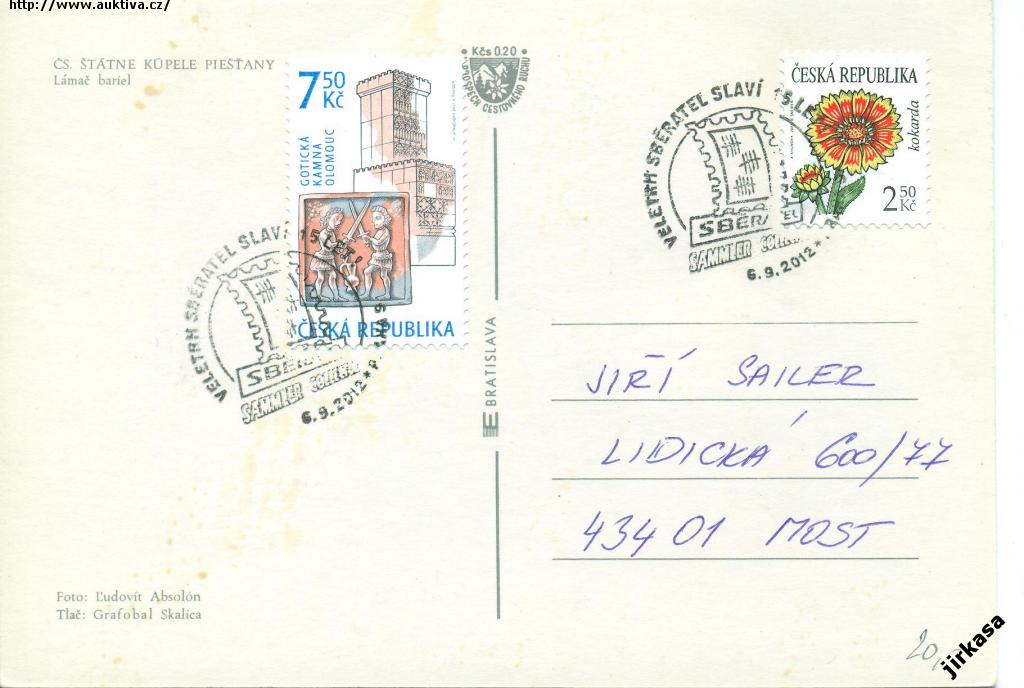 http://www.auktiva.cz/
ČS. ŠTÁTNE KÚPELE PIEŠŤANY
Lámač bariel
7 50 Kč
GOTICKÁ
KAMNA
OLOMOUC
ČESKÁ REPUBLIKA
Kčs 0.20
CESTOVNÉHO RUCHU
ČESKÁ REPUBLIKA
kokarda
2 50 Kč
VELETRH SBĚRATEL SLAVÍ 15 LET
SBĚRATEL
SAMMLER
6.9.2012
VELETRH SBĚRATEL SLAVÍ 15 LE
SBĚRATEL
SAMMLER
6.9.2012
BRATISLAVA
JIŘÍ SAILER
LIDICKÁ 600/77
434 01 MOST
Foto: Ľudovít Absolón
Tlač: Grafobal Skalica
20,-
jirkasa